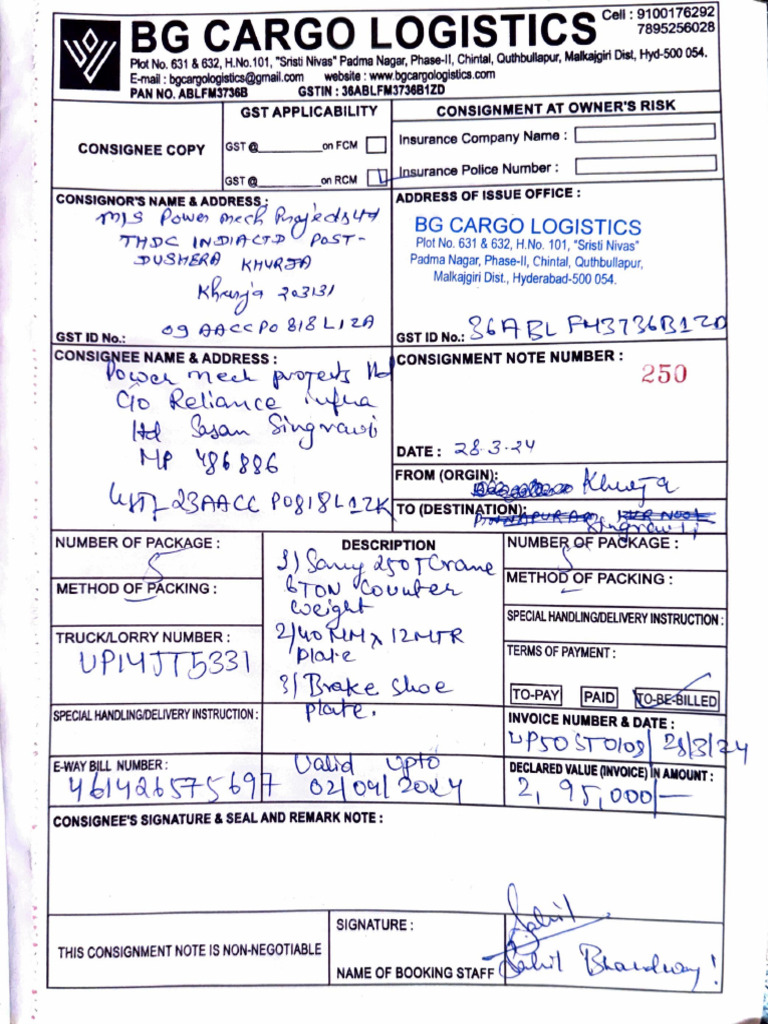 BG CARGO LOGISTICS
Cell : 9100176292
7895256028
Plot No. 631 & 632, H.No.101, "Sristi Nivas" Padma Nagar, Phase-II, Chintal, Quthbullapur, Malkajgiri Dist, Hyd-500 054.
E-mail : bgcargologistics@gmail.com website : www.bgcargologistics.com
PAN NO. ABLFM3736B GSTIN : 36ABLFM3736B1ZD
CONSIGNEE COPY
GST APPLICABILITY
GST @ on FCM
GST @ on RCM
CONSIGNMENT AT OWNER'S RISK
Insurance Company Name :
Insurance Police Number :
CONSIGNOR'S NAME & ADDRESS :
M/S Power mech Projects Ltd
THDC INDIA LTD POST-
DUSHERA KHURJA
Khurja 203131
GST ID No.: 09AACCP0818L1ZA
ADDRESS OF ISSUE OFFICE :
BG CARGO LOGISTICS
Plot No. 631 & 632, H.No. 101, "Sristi Nivas"
Padma Nagar, Phase-II, Chintal, Quthbullapur,
Malkajgiri Dist., Hyderabad-500 054.
GST ID No.: 36ABLFM3736B1ZD
CONSIGNEE NAME & ADDRESS :
Power mech projects ltd
C/o Reliance infra
ltd Sasan Singrawli
MP 486886
GST 23AACCP0818L1ZK
CONSIGNMENT NOTE NUMBER :
250
DATE : 28.3.24
FROM (ORGIN): Khurja
TO (DESTINATION):
Singrawli
NUMBER OF PACKAGE :
METHOD OF PACKING :
TRUCK/LORRY NUMBER :
UP14JT5331
SPECIAL HANDLING/DELIVERY INSTRUCTION :
DESCRIPTION
1) Sany 250T Crane
6TON Counter
weight
2/40MM x 12MTR
plate
3) Brake shoe
plate.
NUMBER OF PACKAGE :
METHOD OF PACKING :
SPECIAL HANDLING/DELIVERY INSTRUCTION :
TERMS OF PAYMENT :
TO-PAY PAID TO-BE-BILLED
INVOICE NUMBER & DATE :
UP50ST0109/ 28/3/24
E-WAY BILL NUMBER :
461426575697
Valid upto
02/04/2024
DECLARED VALUE (INVOICE) IN AMOUNT :
2,95,000/-
CONSIGNEE'S SIGNATURE & SEAL AND REMARK NOTE :
THIS CONSIGNMENT NOTE IS NON-NEGOTIABLE
SIGNATURE : Sahil
NAME OF BOOKING STAFF Sahil Bhardwaj